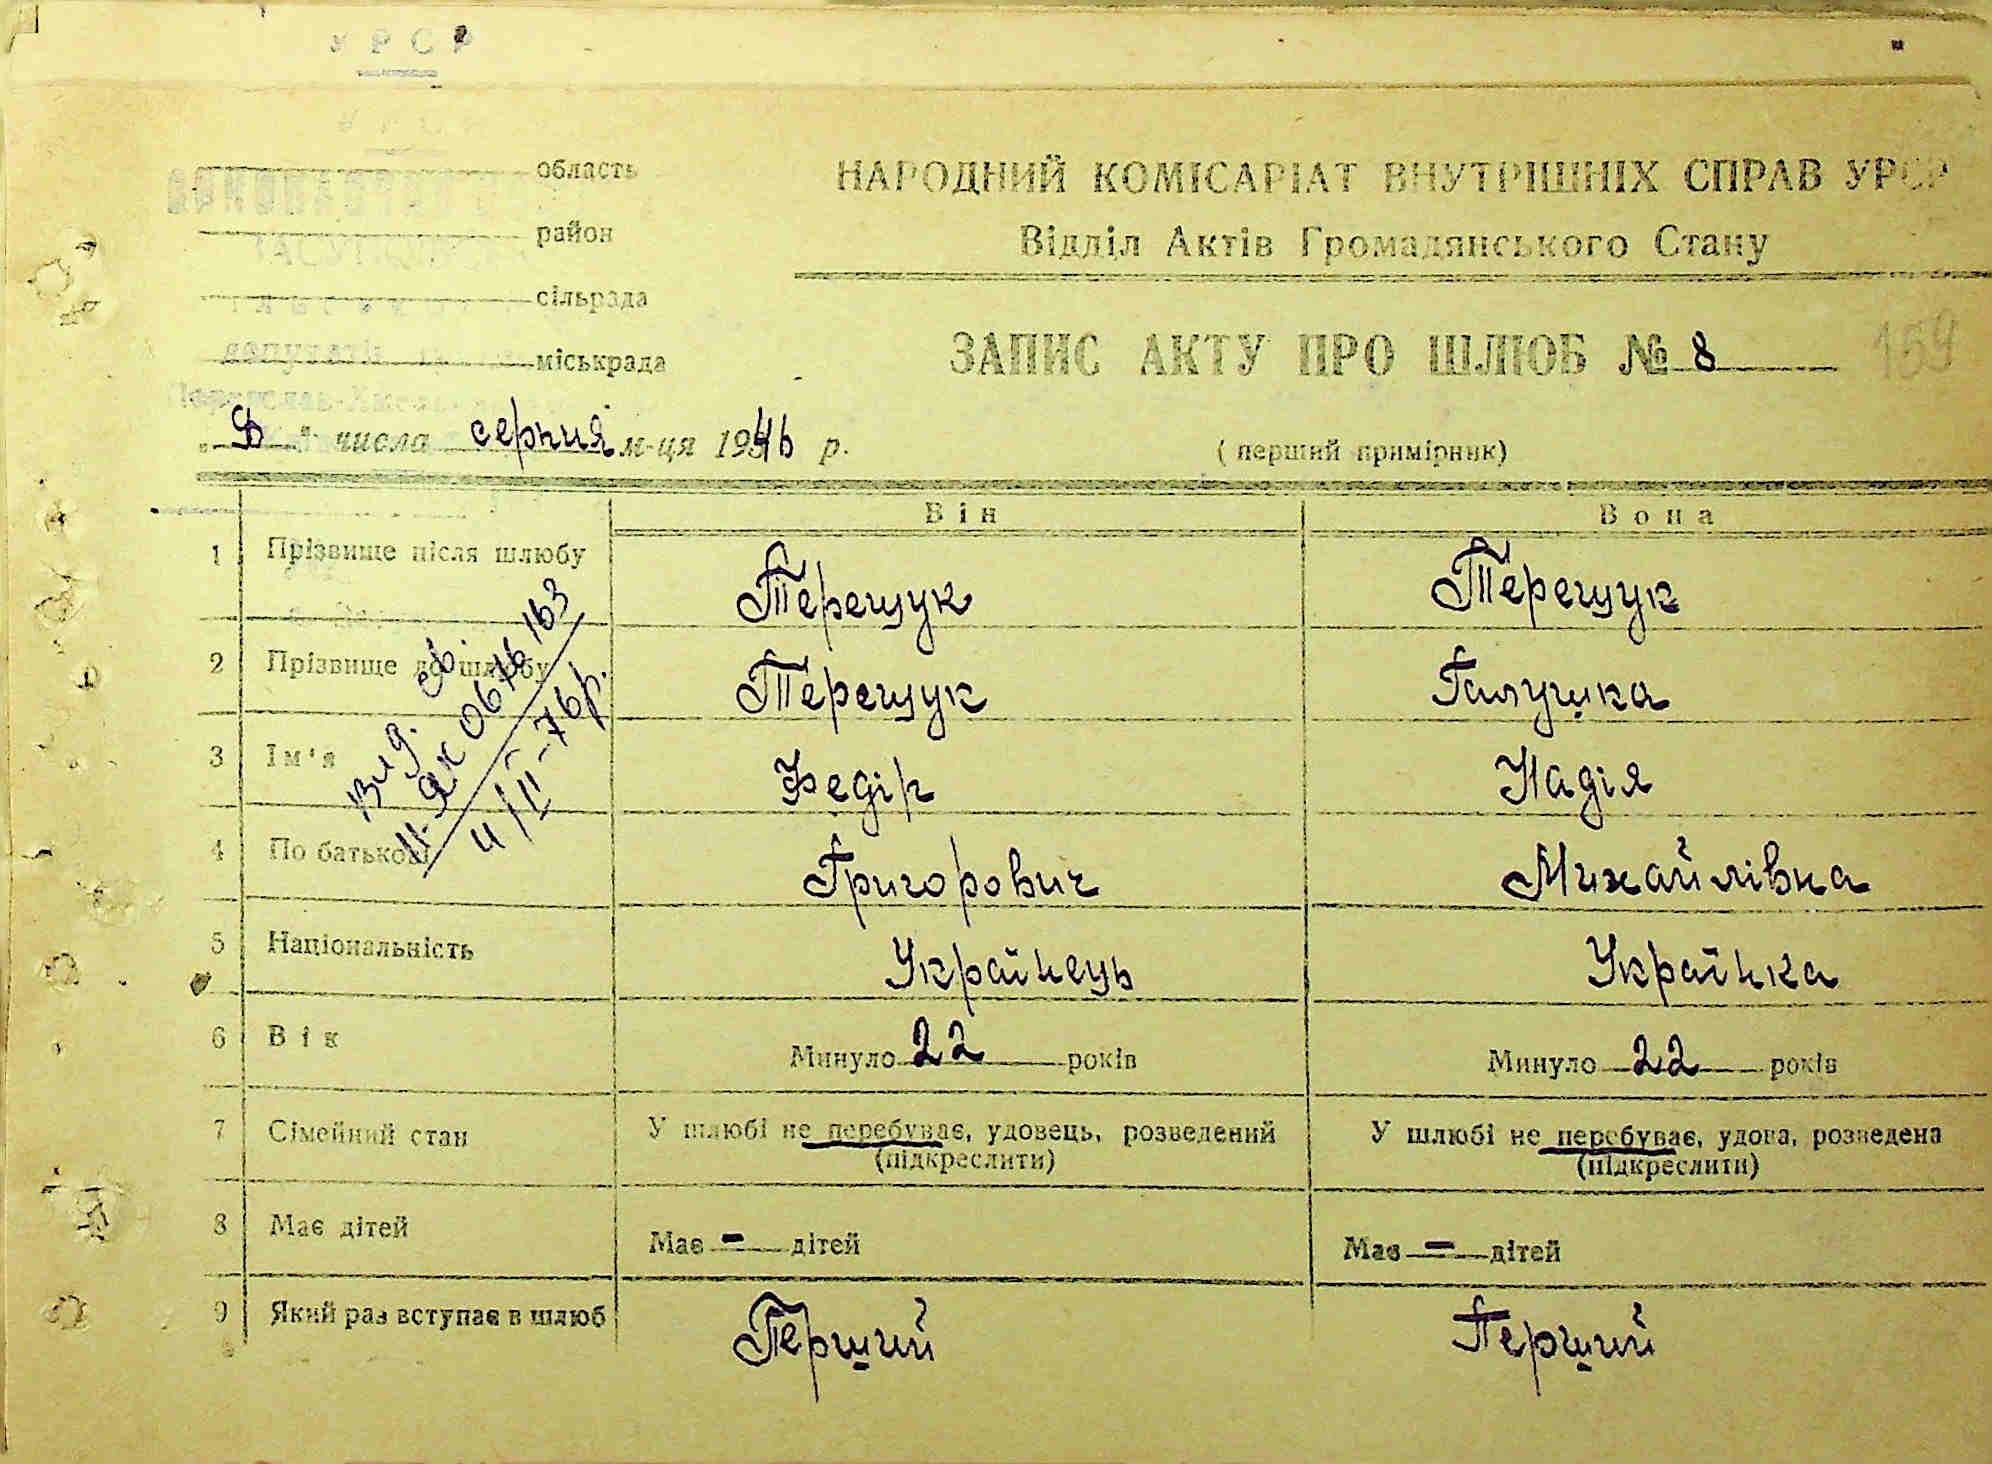 УРСР
область
НАРОДНИЙ КОМІСАРІАТ ВНУТРІШНІХ СПРАВ УРСР
район
Відділ Актів Громадянського Стану
сільрада
міськрада
ЗАПИС АКТУ ПРО ШЛЮБ № 8
159
числа серпня м-ця 1946 р.
(перший примірник)
Він Вона
1 Прізвище після шлюбу Терещук Терещук
2 Прізвище до шлюбу Терещук Галушка
3 Ім'я Федір Надія
4 По батькові Григорович Михайлівна
5 Національність Українець Українка
6 Вік Минуло 22 років Минуло 22 років
7 Сімейний стан У шлюбі не перебуває, удовець, розведений У шлюбі не перебуває, удова, розведена
(підкреслити) (підкреслити)
8 Має дітей Має - дітей Має - дітей
9 Який раз вступає в шлюб Перший Перший
вид. св.